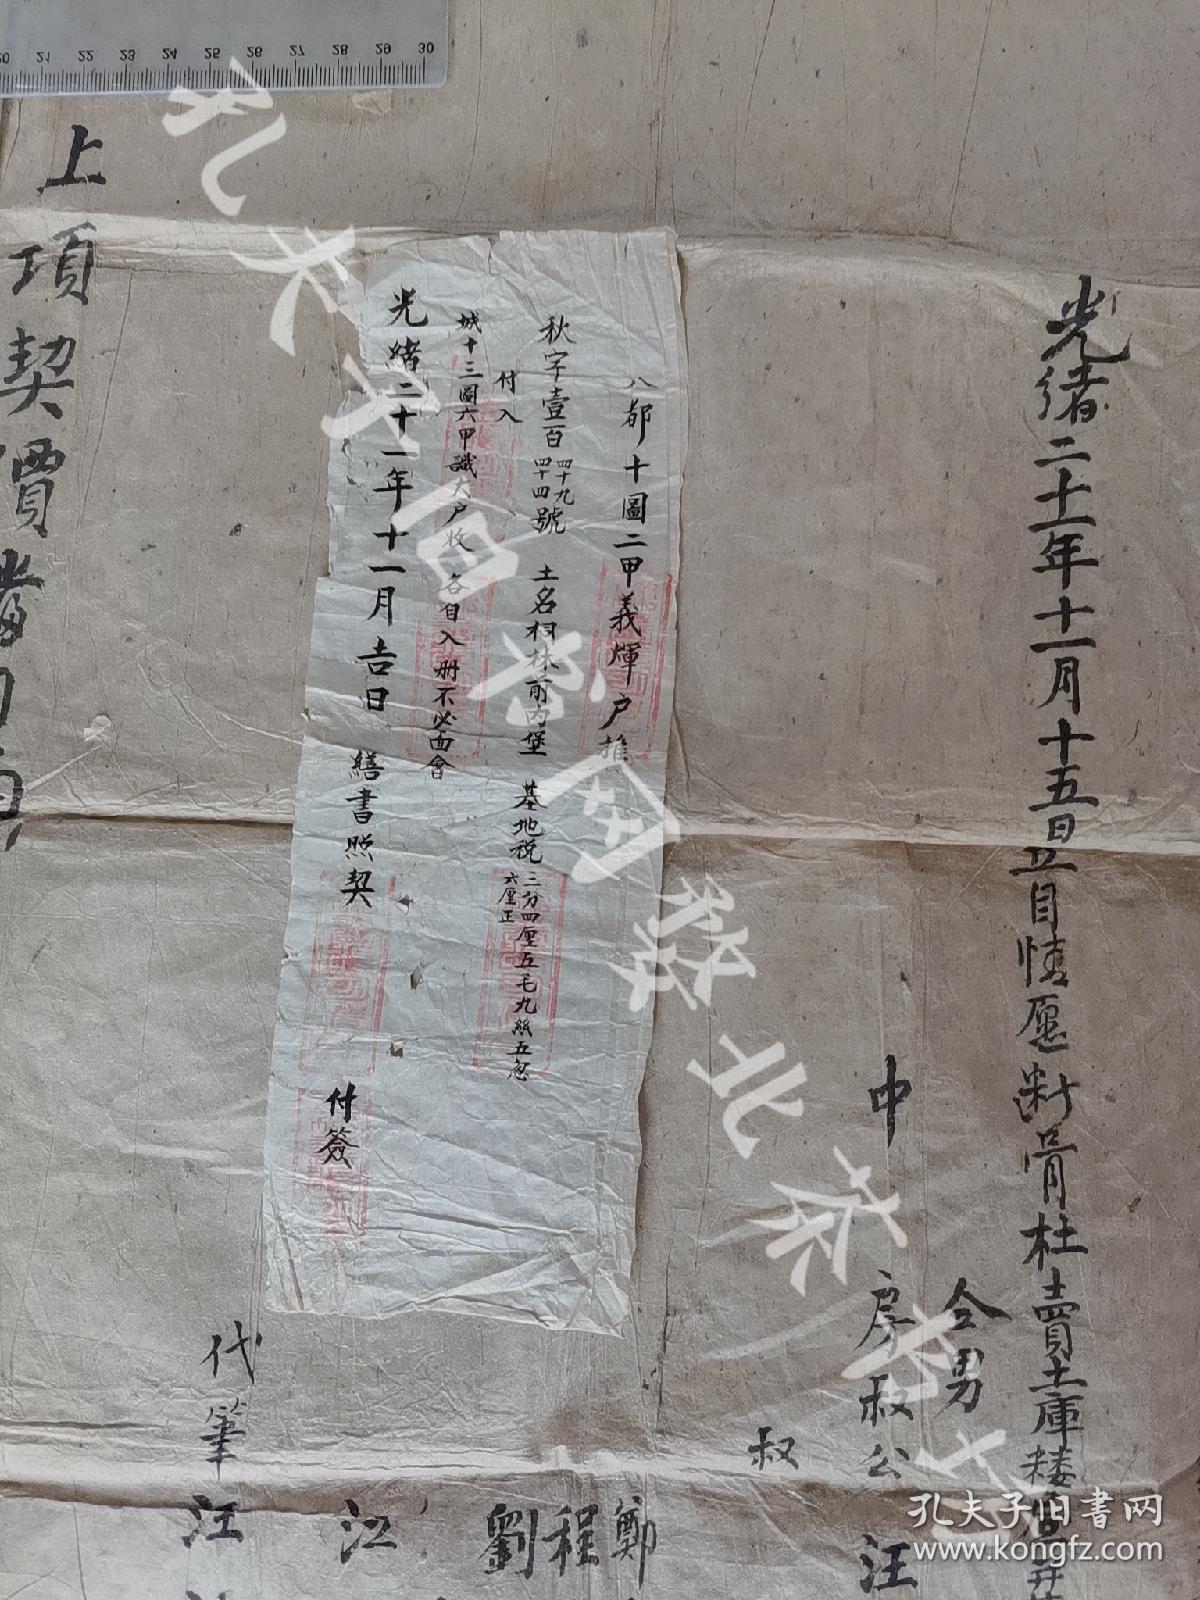 光緒二十一年十一月十五日立自情愿断骨杜賣土庫楼屋并
仝男
中 房叔公 汪
叔
鄭
程
劉
江
代筆 汪
八都十圖二甲義煇户推
秋字壹百四十九四十四號 土名祠林前内堡 基地税三分四厘五毛九絲五忽六厘正
付入
城十三圖六甲誠大户收 各自入册不必面會
光緒二十一年十一月吉日 繕書照契 付簽
上項契價當
20 21 22 23 24 25 26 27 28 29 30
孔夫子旧书网
www.kongfz.com